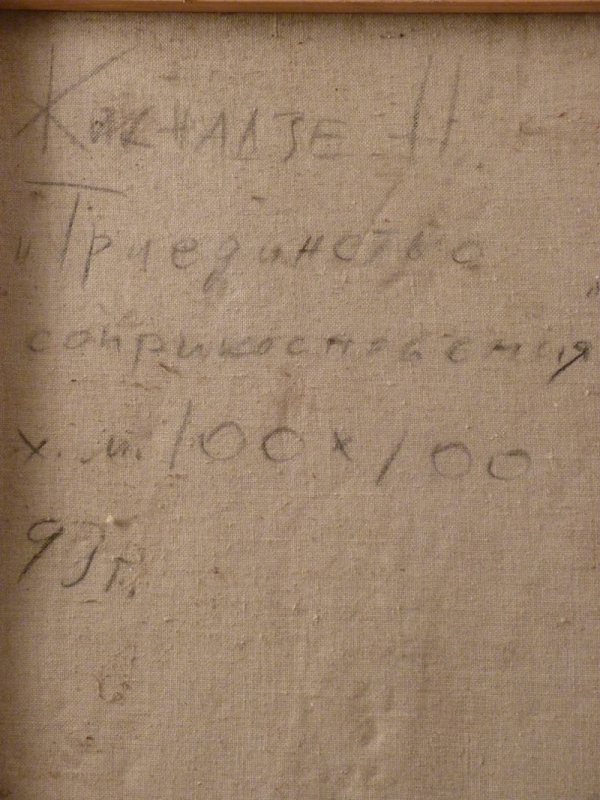 Н.
„Триединство
соприкосновения"
х. м. 100 х 100
93 г.